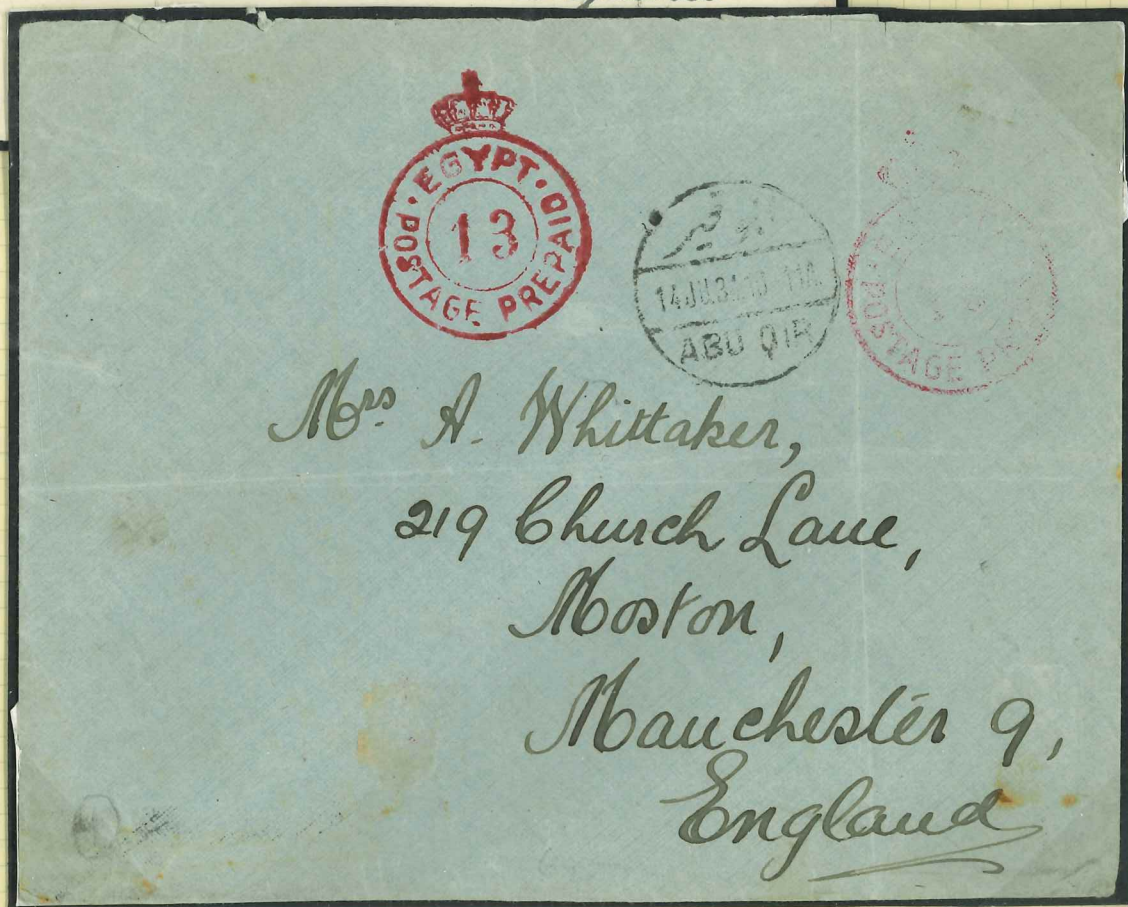 EGYPT
POSTAGE PREPAID
13
أبو قير
14 JU.31.10
ABU QIR
POSTAGE PRE
Mrs. A. Whittaker,
219 Church Lane,
Moston,
Manchester 9,
England